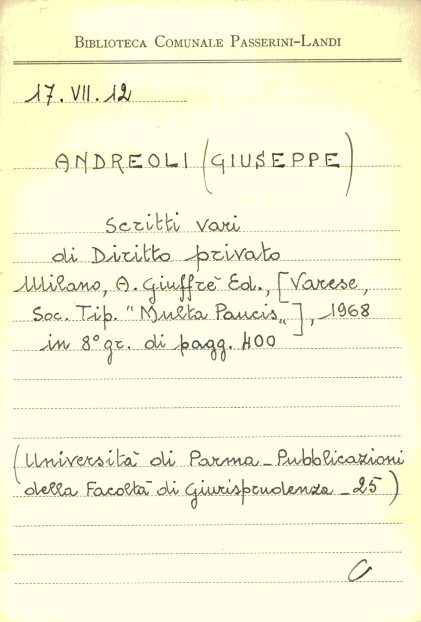 BIBLIOTECA COMUNALE PASSERINI-LANDI
17.VII.12
ANDREOLI (GIUSEPPE)
Scritti vari
di Diritto privato
Milano, A. Giuffrè Ed., [Varese,
Soc. Tip. "Multa Paucis„], 1968
in 8° gr. di pagg. 400
(Università di Parma - Pubblicazioni
della Facoltà di Giurisprudenza - 25)
C